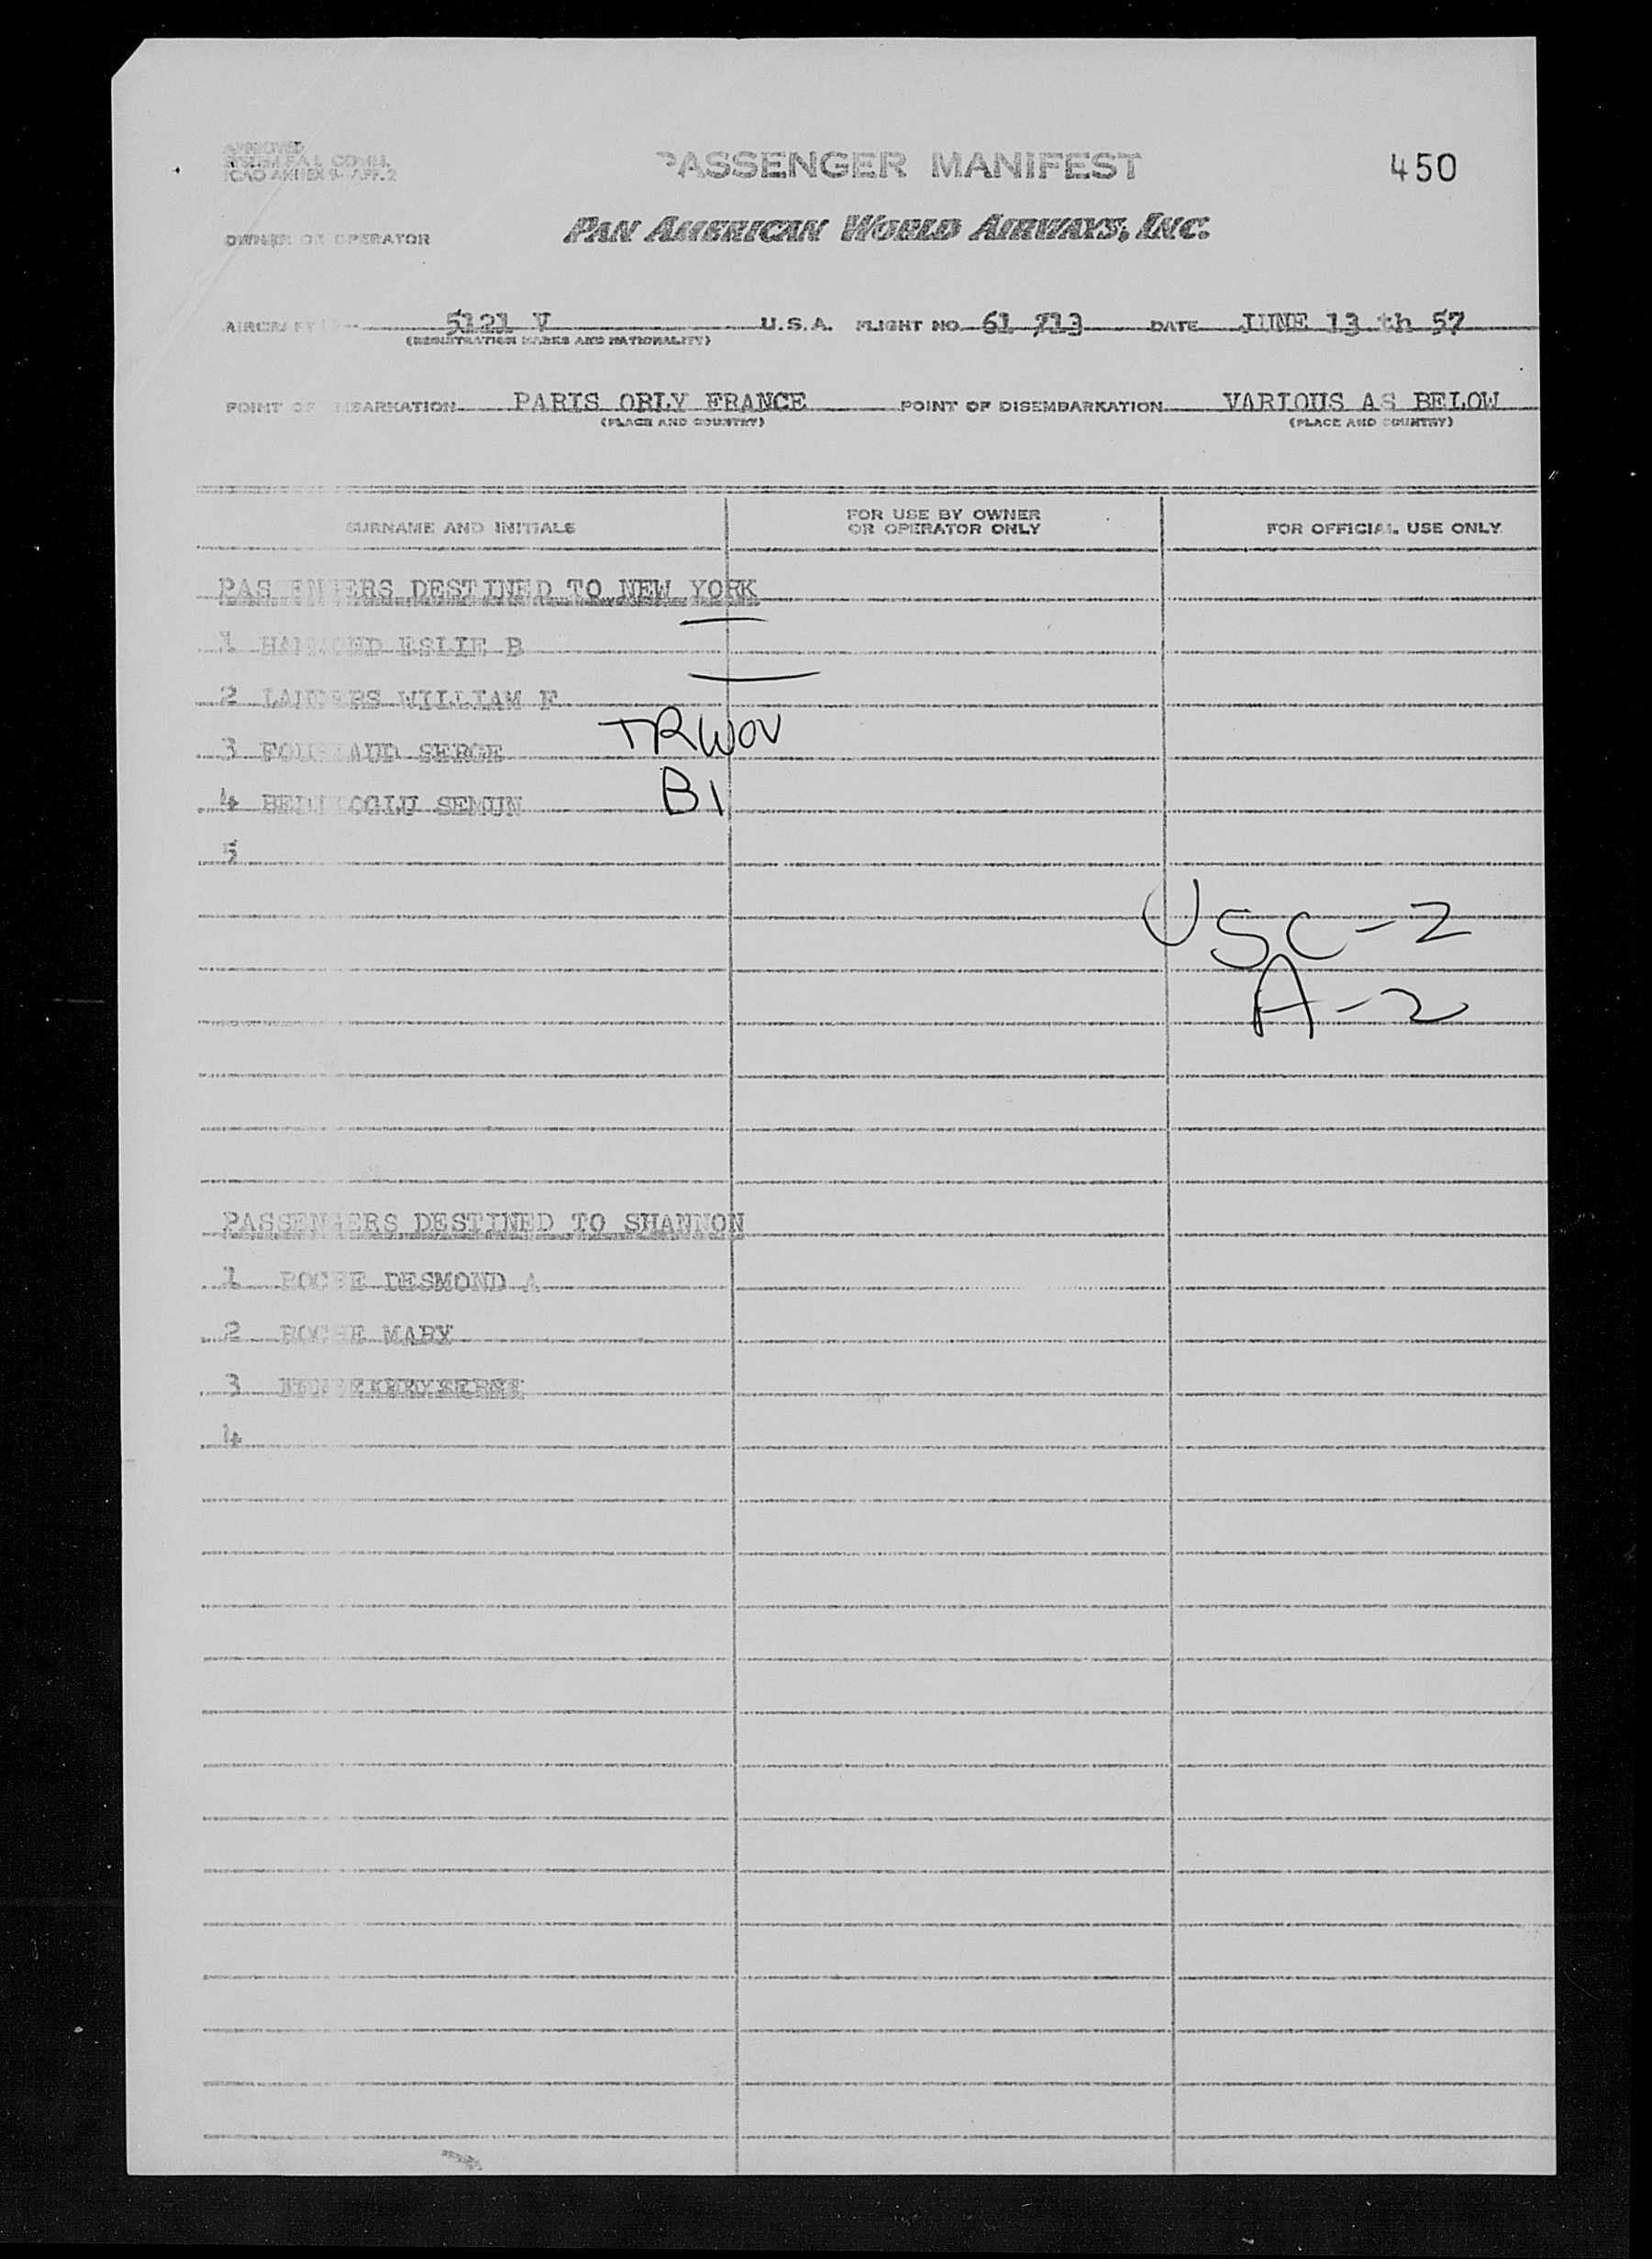 APPROVED
SYSTEM FAL COMM.
ICAO ANNEX 9- APP. 2
PASSENGER MANIFEST
450
OWNER OR OPERATOR
PAN AMERICAN WORLD AIRWAYS, INC.
AIRCRAFT 5121 V U.S.A. FLIGHT NO. 61 /13 DATE JUNE 13 th 57
(REGISTRATION MARKS AND NATIONALITY)
POINT OF EMBARKATION PARIS ORLY FRANCE POINT OF DISEMBARKATION VARIOUS AS BELOW
(PLACE AND COUNTRY) (PLACE AND COUNTRY)
SURNAME AND INITIALS
FOR USE BY OWNER
OR OPERATOR ONLY
FOR OFFICIAL USE ONLY
PASSENGERS DESTINED TO NEW YORK
1 ESLIE B
2 LANDERS WILLIAM F
3 SERGE TRWOV
4 SEMUN B1
5
USC-2
A-2
PASSENGERS DESTINED TO SHANNON
1 ROCHE DESMOND A
2 ROCHE MARY
3
4